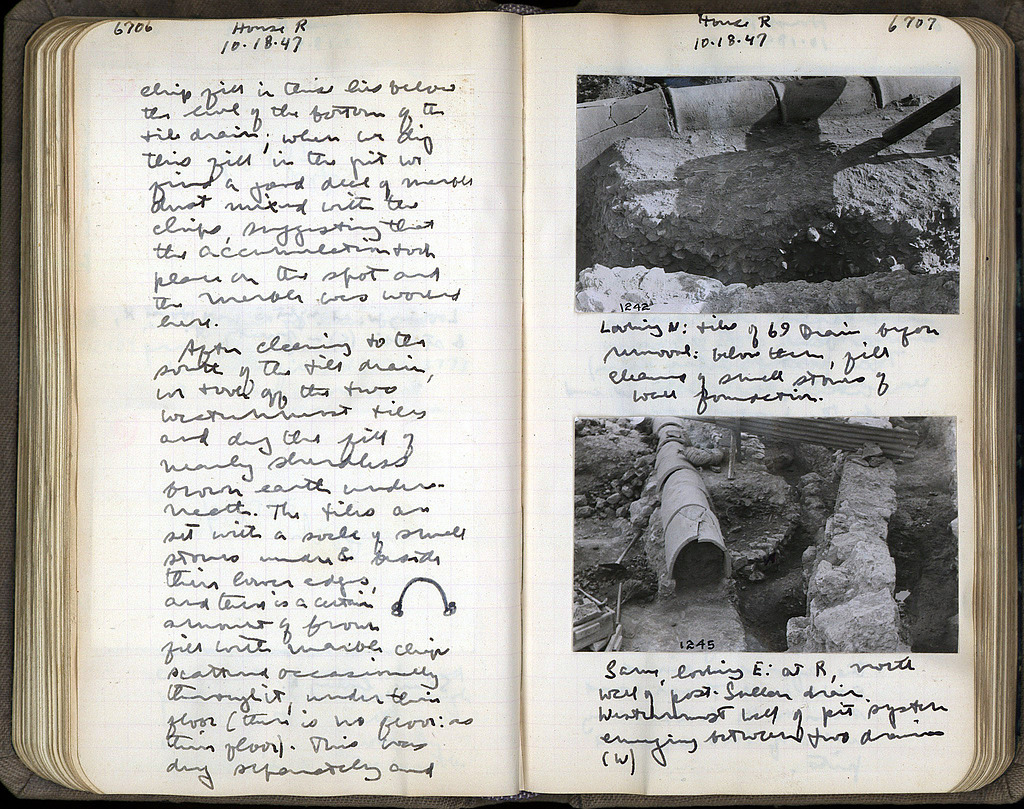 6706
House R
10·18·47
chip fill in this lies below
the level of the bottom of the
tile drain; when we dig
this fill in the pit we
find a good deal of marble
dust mixed with the
chips, suggesting that
the accumulation took
place on the spot and
the marble was worked
here.
After cleaning to the
south of the tile drain,
we took off the two
westernmost tiles
and dug the fill of
nearly sherdless
brown earth under-
neath. The tiles are
set with a socle of small
stones under & beside
their lower edges,
and there is a certain
amount of brown
fill with marble chips
scattered occasionally
through it, under their
floor (there is no floor: as
their floor). This was
dug separately and
House R
10·18·47
6707
1242
Looking N: tiles of 69 Drain before
removal: below them, fill
cleaned of small stones of
wall foundation.
1245
Same, looking E: at R, north
wall of post-Sullan drain.
Westernmost wall of pit system
emerging between two drains
(W)